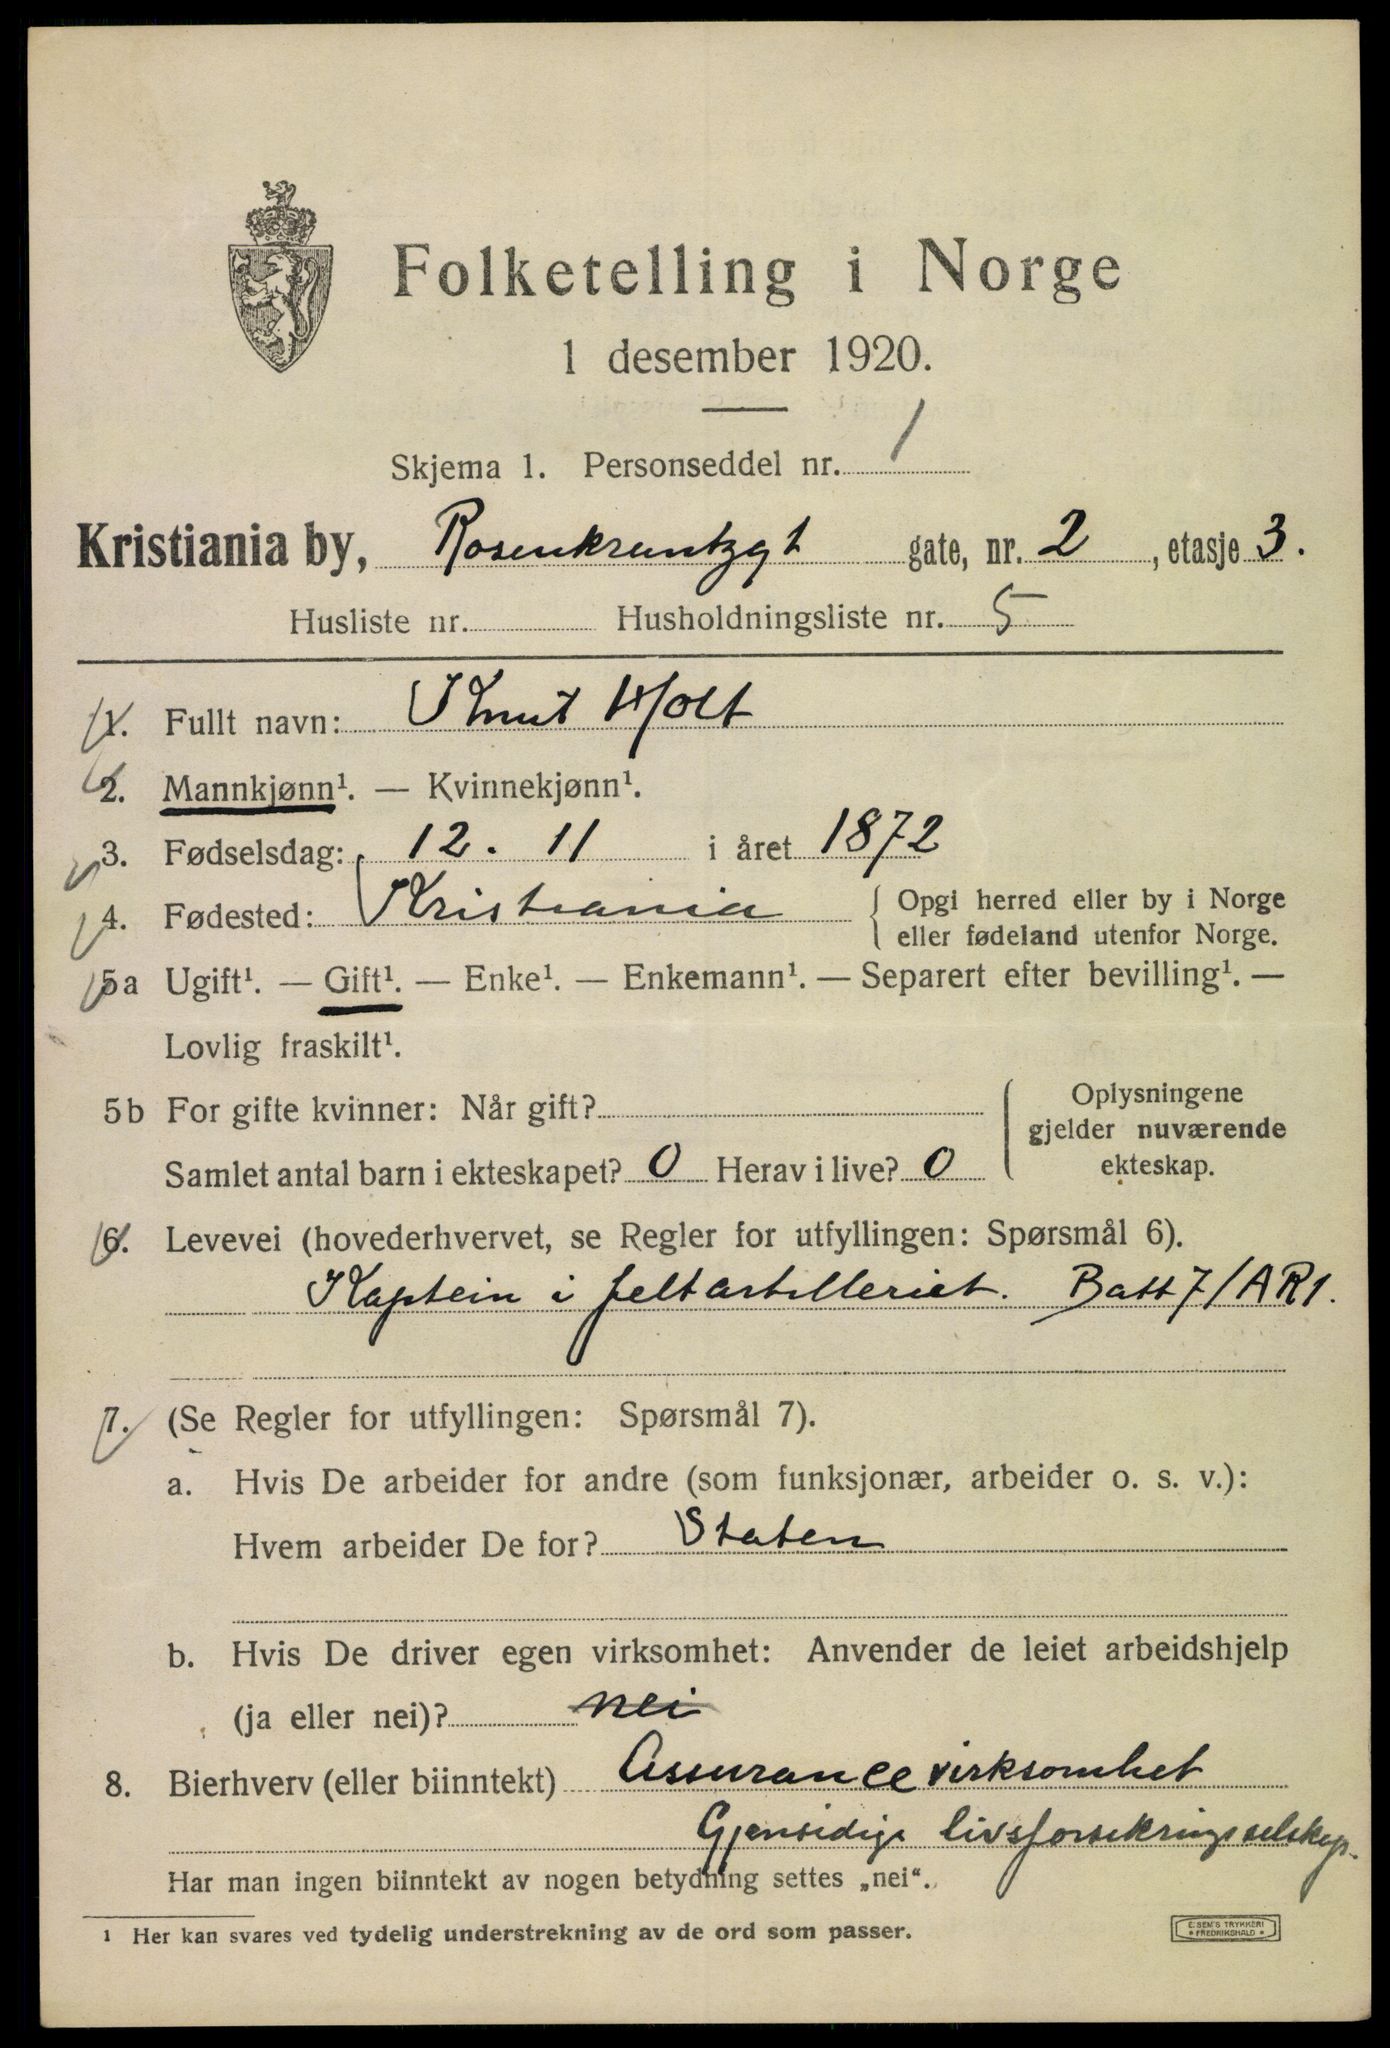 Folketelling i Norge
1 desember 1920.
Skjema 1. Personseddel nr. 1
Kristiania by, Rosenkrantzgt gate, nr. 2, etasje 3.
Husliste nr. Husholdningsliste nr. 5
1. Fullt navn: Knut Holt
2. Mannkjønn¹. — Kvinnekjønn¹.
3. Fødselsdag: 12. 11 i året 1872
4. Fødested: Kristiania { Opgi herred eller by i Norge
eller fødeland utenfor Norge.
5a Ugift¹. — Gift¹. — Enke¹. — Enkemann¹. — Separert efter bevilling¹. —
Lovlig fraskilt¹.
5b For gifte kvinner: Når gift? { Oplysningene
gjelder nuværende
Samlet antal barn i ekteskapet? 0 Herav i live? 0 ekteskap.
6. Levevei (hovederhvervet, se Regler for utfyllingen: Spørsmål 6).
Kaptein i feltartilleriet. Batt 7/AR1.
7. (Se Regler for utfyllingen: Spørsmål 7).
a. Hvis De arbeider for andre (som funksjonær, arbeider o. s. v.):
Hvem arbeider De for? Staten
b. Hvis De driver egen virksomhet: Anvender de leiet arbeidshjelp
(ja eller nei)? nei
8. Bierhverv (eller biinntekt) Assurancevirksomhet
Gjensidige livsforsikringsselskap.
Har man ingen biinntekt av nogen betydning settes „nei“.
¹ Her kan svares ved tydelig understrekning av de ord som passer.
E. SEM'S TRYKKERI
* FREDRIKSHALD *